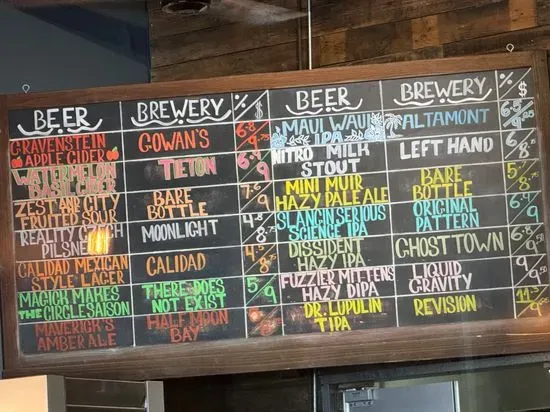 BEER BREWERY % $
GRAVENSTEIN APPLE CIDER GOWAN'S 6.8 9
WATERMELON BASIL CIDER TIETON 6.9
ZESTAR CITY FRUITED SOUR BARE BOTTLE 7.6 9
REALITY CZECH PILSNER MOONLIGHT 4.8
CALIDAD MEXICAN STYLE LAGER CALIDAD 8
MAGICK MAKES THE CIRCLE SAISON THERE DOES NOT EXIST 5 9
MAVERICK'S AMBER ALE HALF MOON BAY
BEER BREWERY % $
MAUI WAUI IPA ALTAMONT 6.5
NITRO MILK STOUT LEFT HAND 6 8
MINI MUIR HAZY PALE ALE BARE BOTTLE 8
SLANGIN SERIOUS SCIENCE IPA ORIGINAL PATTERN 6.9 9
DISSIDENT HAZY IPA GHOST TOWN 6.8
FUZZIER MITTENS HAZY DIPA LIQUID GRAVITY 9
DR. LUPULIN TIPA REVISION 11.3 9